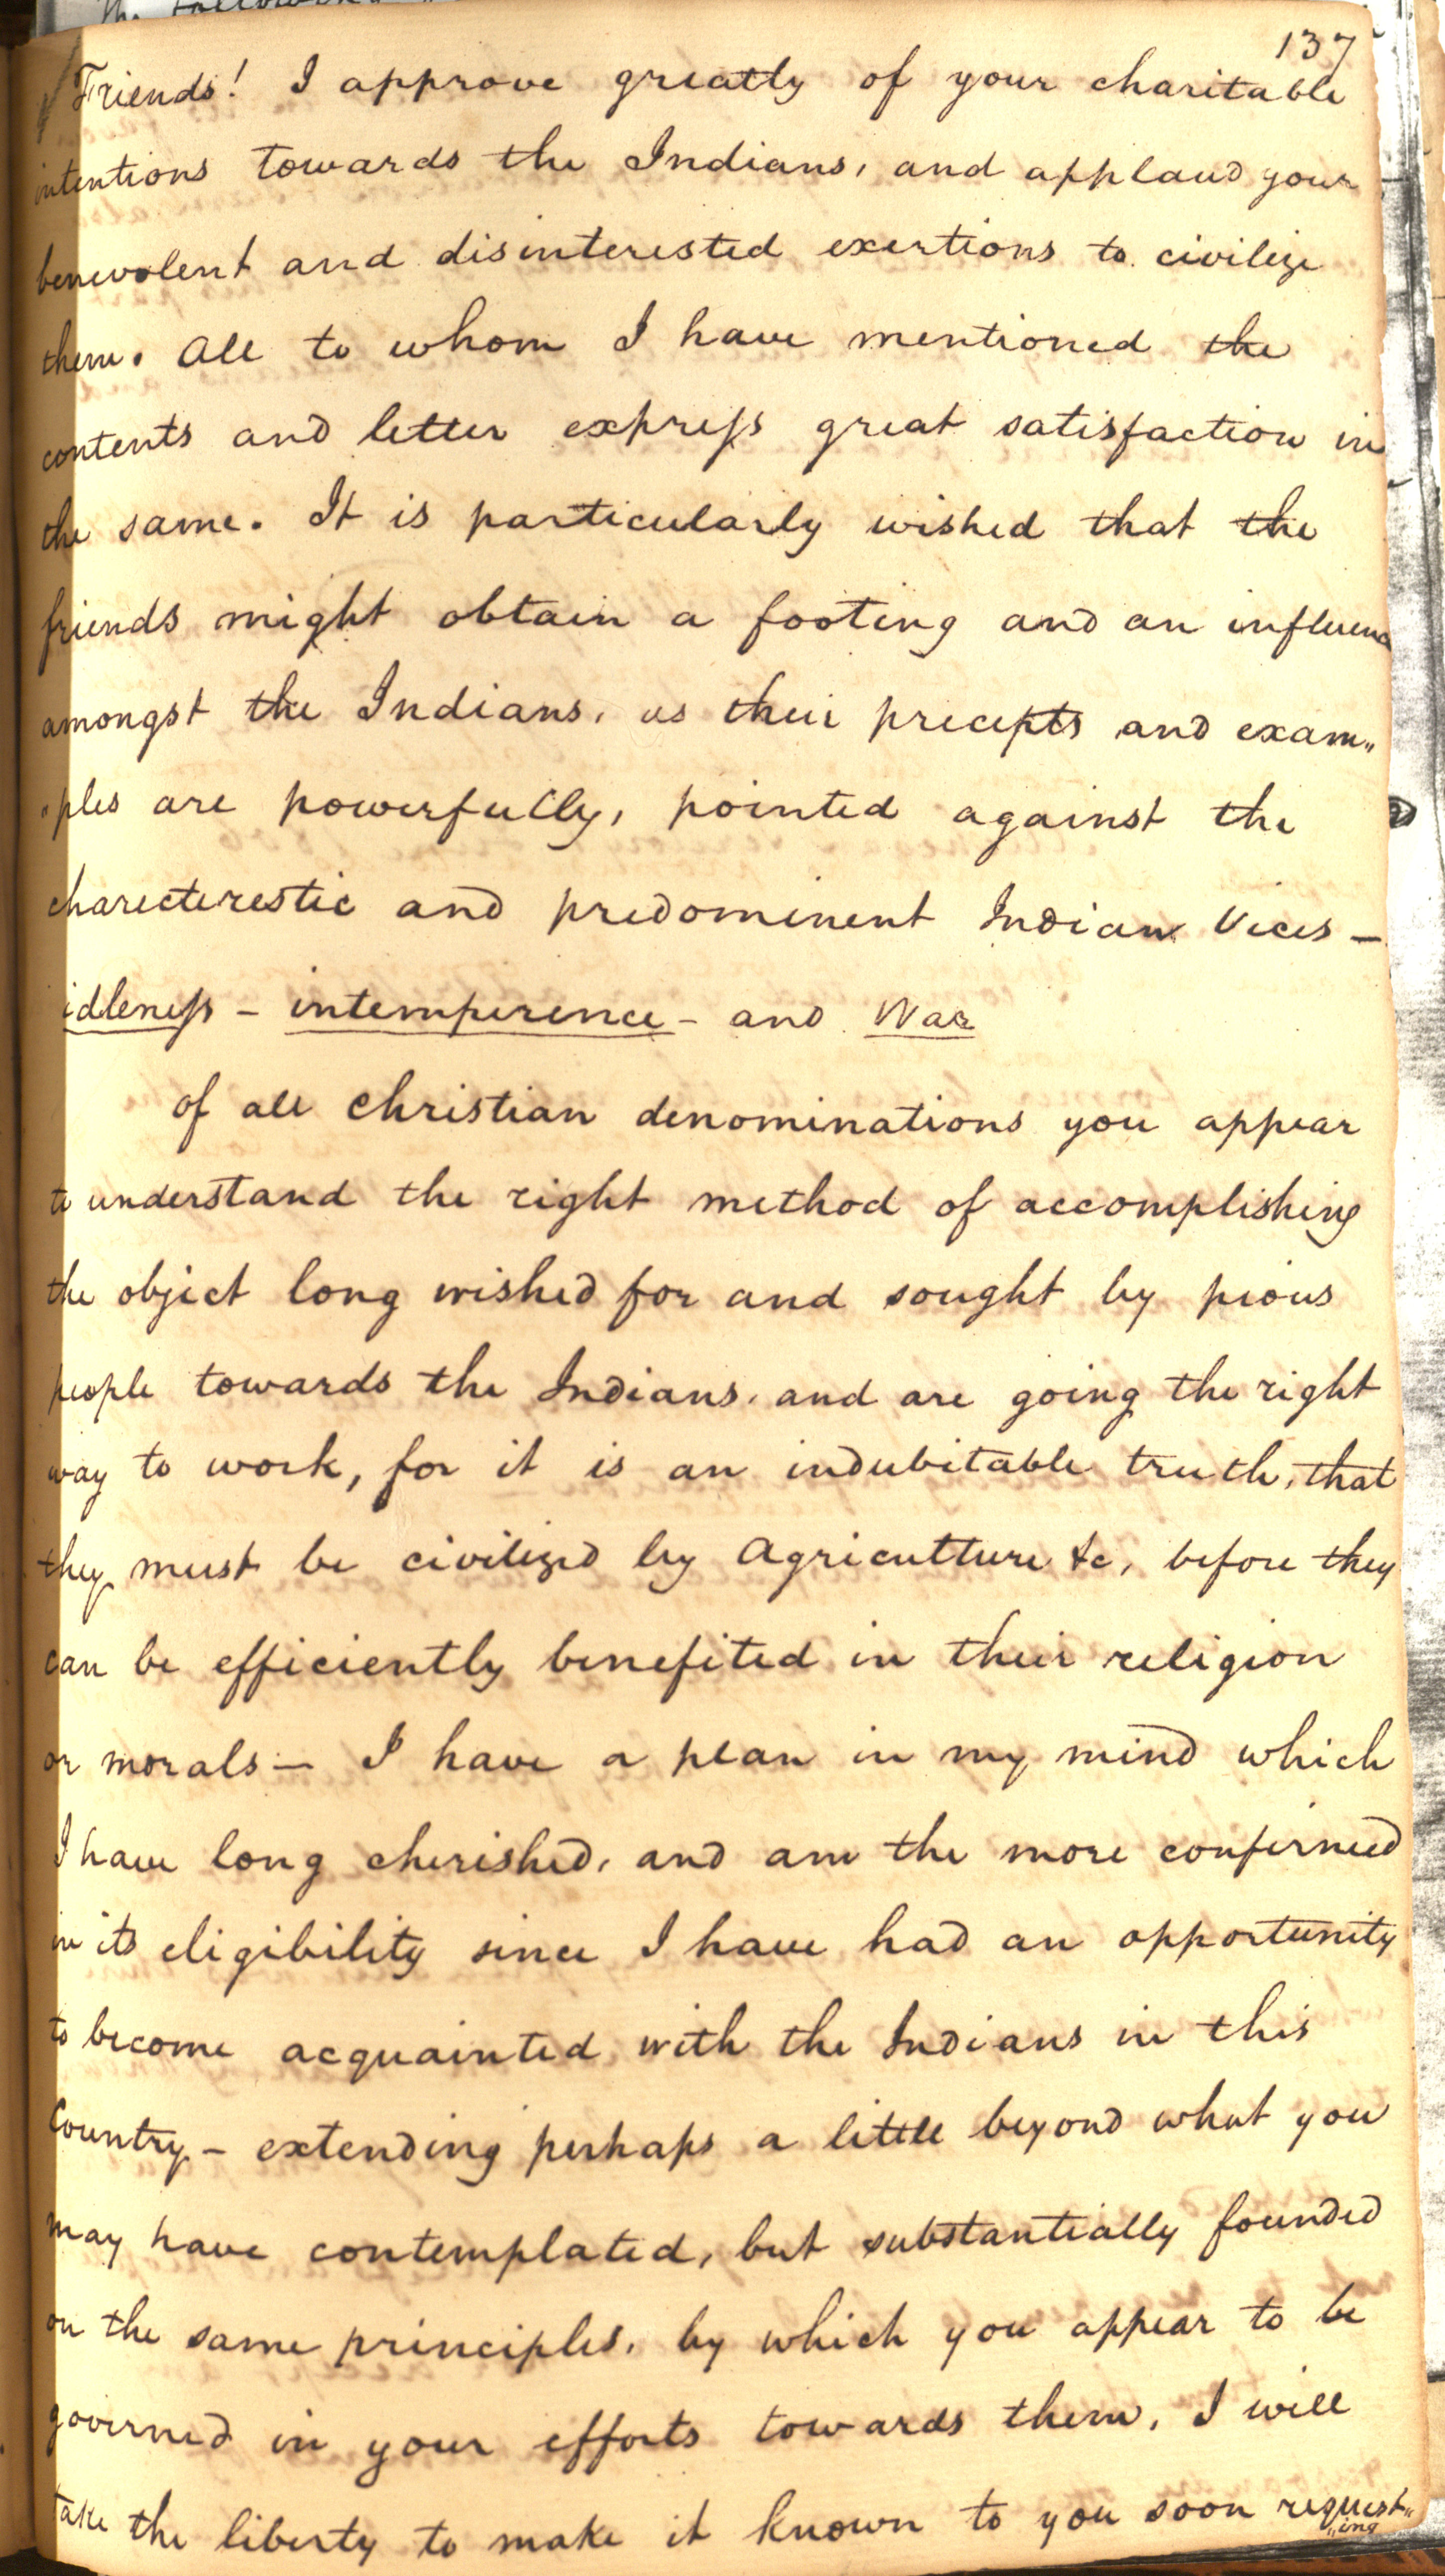 137
Friends! I approve greatly of your charitable
intentions towards the Indians, and applaud your
benevolent and disinterested exertions to civilize
them. All to whom I have mentioned the
contents and letter express great satisfaction in
the same. It is particularly wished that the
friends might obtain a footing and an influence
amongst the Indians, as their precepts and exam„
„ples are powerfully, pointed against the
charecterestic and predominent Indian Vices —
idleness - intemperence - and War
of all christian denominations you appear
to understand the right method of accomplishing
the object long wished for and sought by pious
people towards the Indians, and are going the right
way to work, for it is an indubitable truth, that
they must be civilized by Agriculture &c, before they
can be efficiently benefited in their religion
or morals — I have a plan in my mind which
I have long cherished, and am the more confirmed
in its eligibility since I have had an opportunity
to become acquainted with the Indians in this
Country - extending perhaps a little beyond what you
may have contemplated, but substantially founded
on the same principles, by which you appear to be
governed in your efforts towards them, I will
take the liberty to make it known to you soon request„
„ing